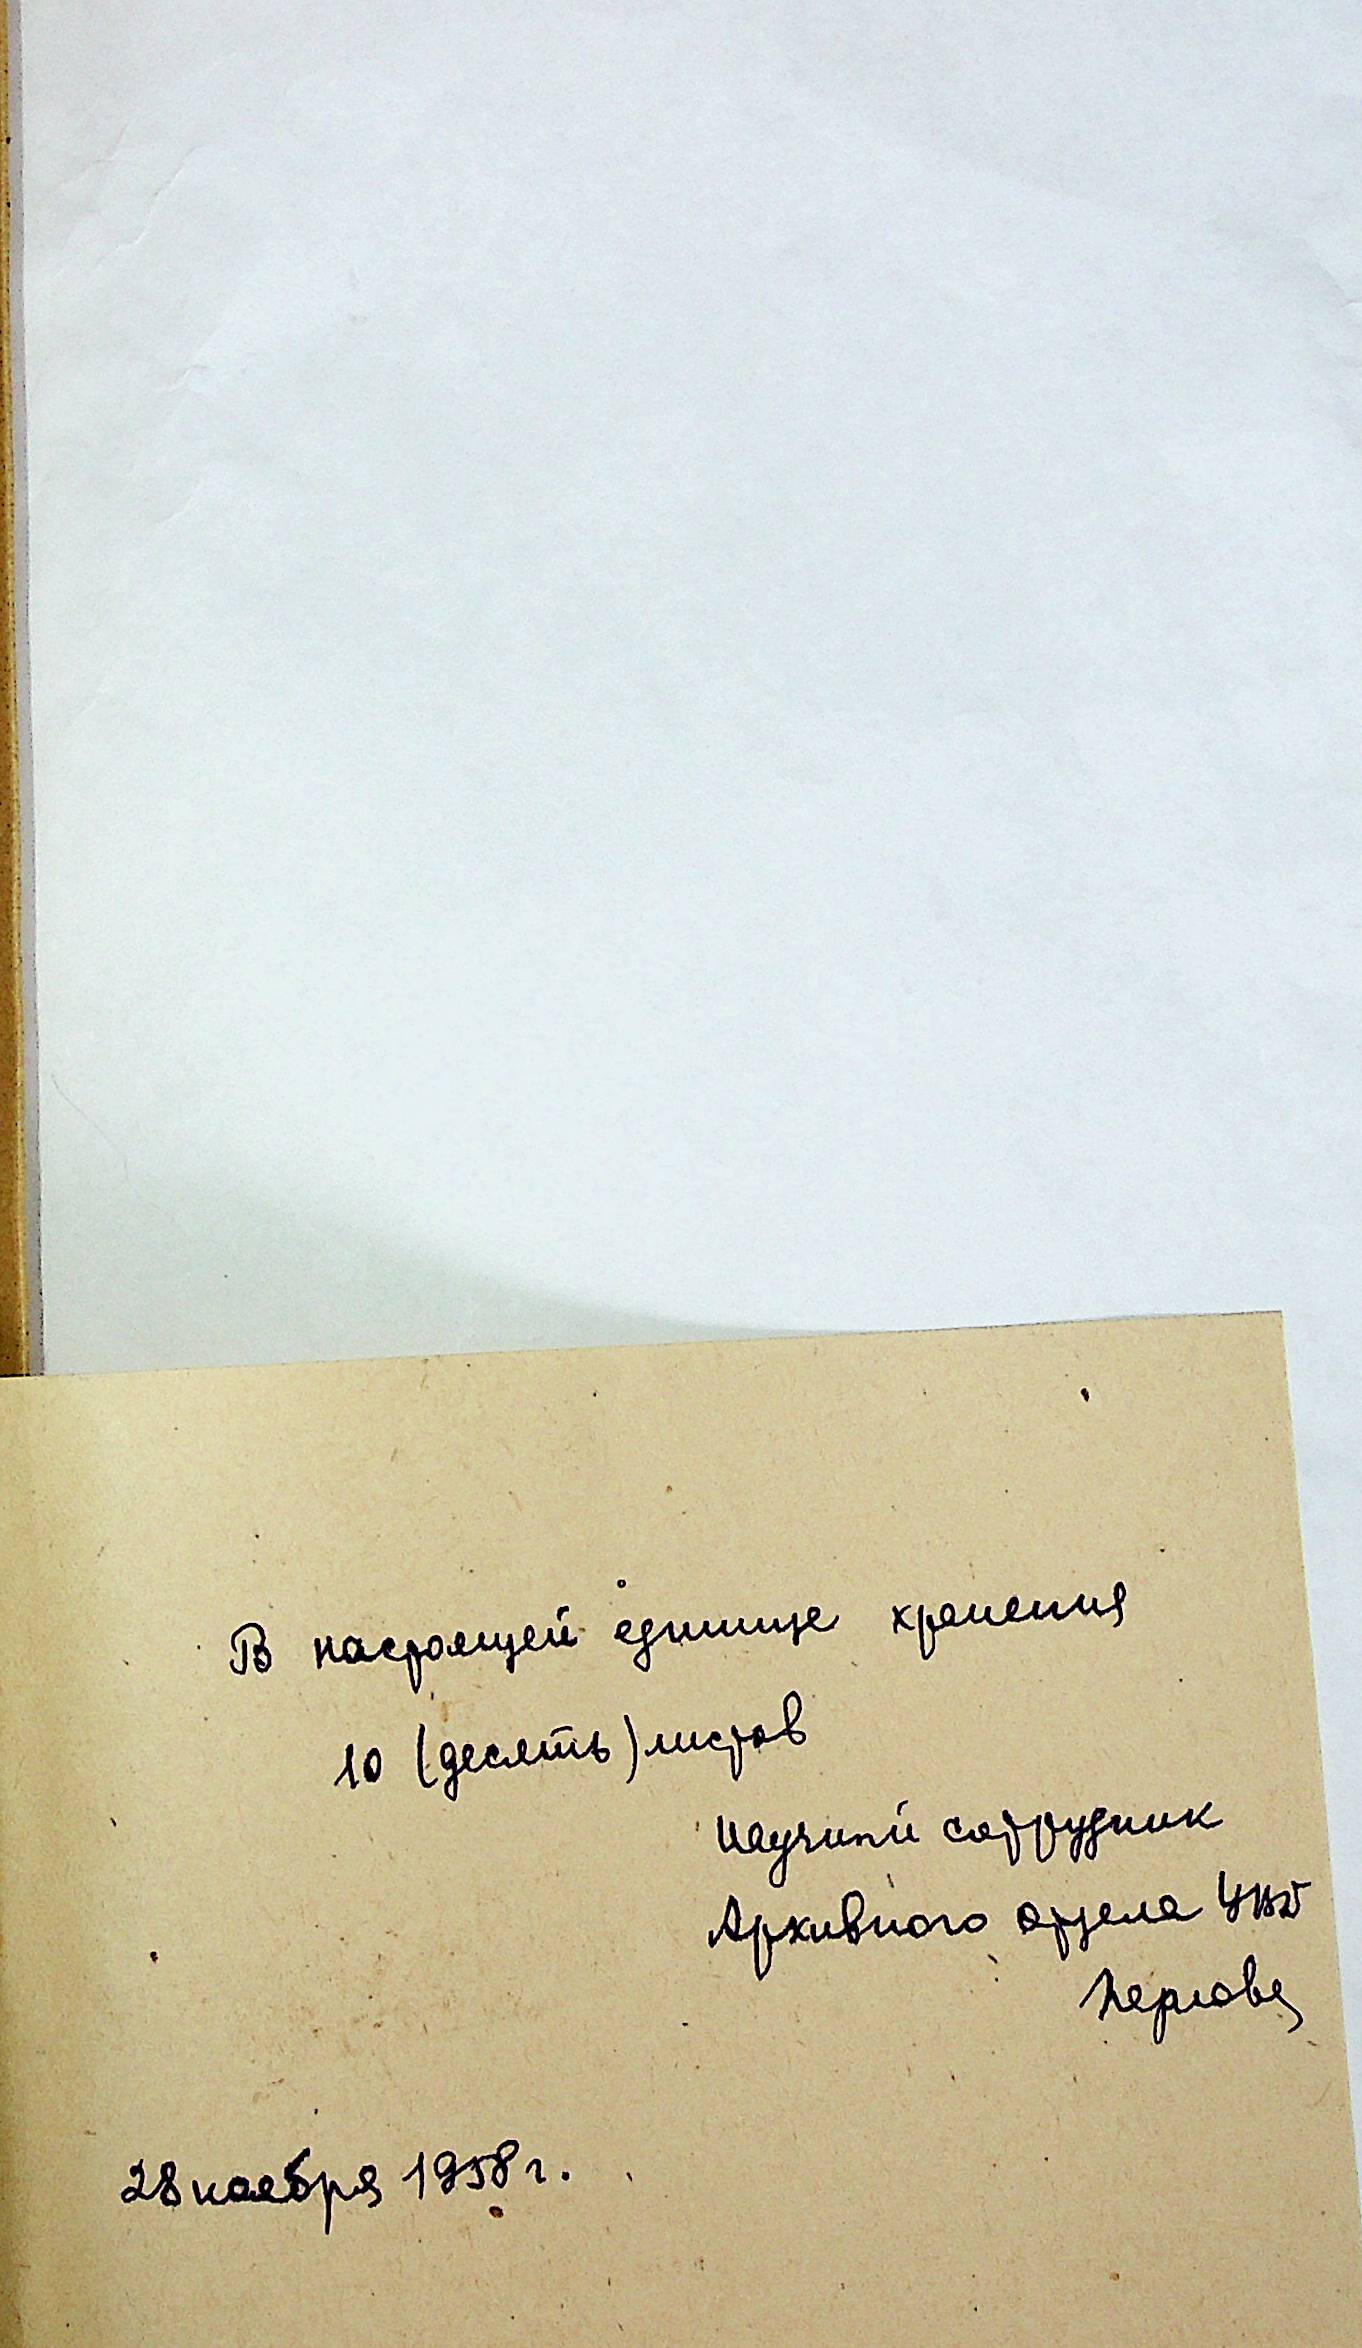 В настоящей единице хранения
10 (десять) листов
Научный сотрудник
Архивного отдела УВД
28 ноября 1958 г.